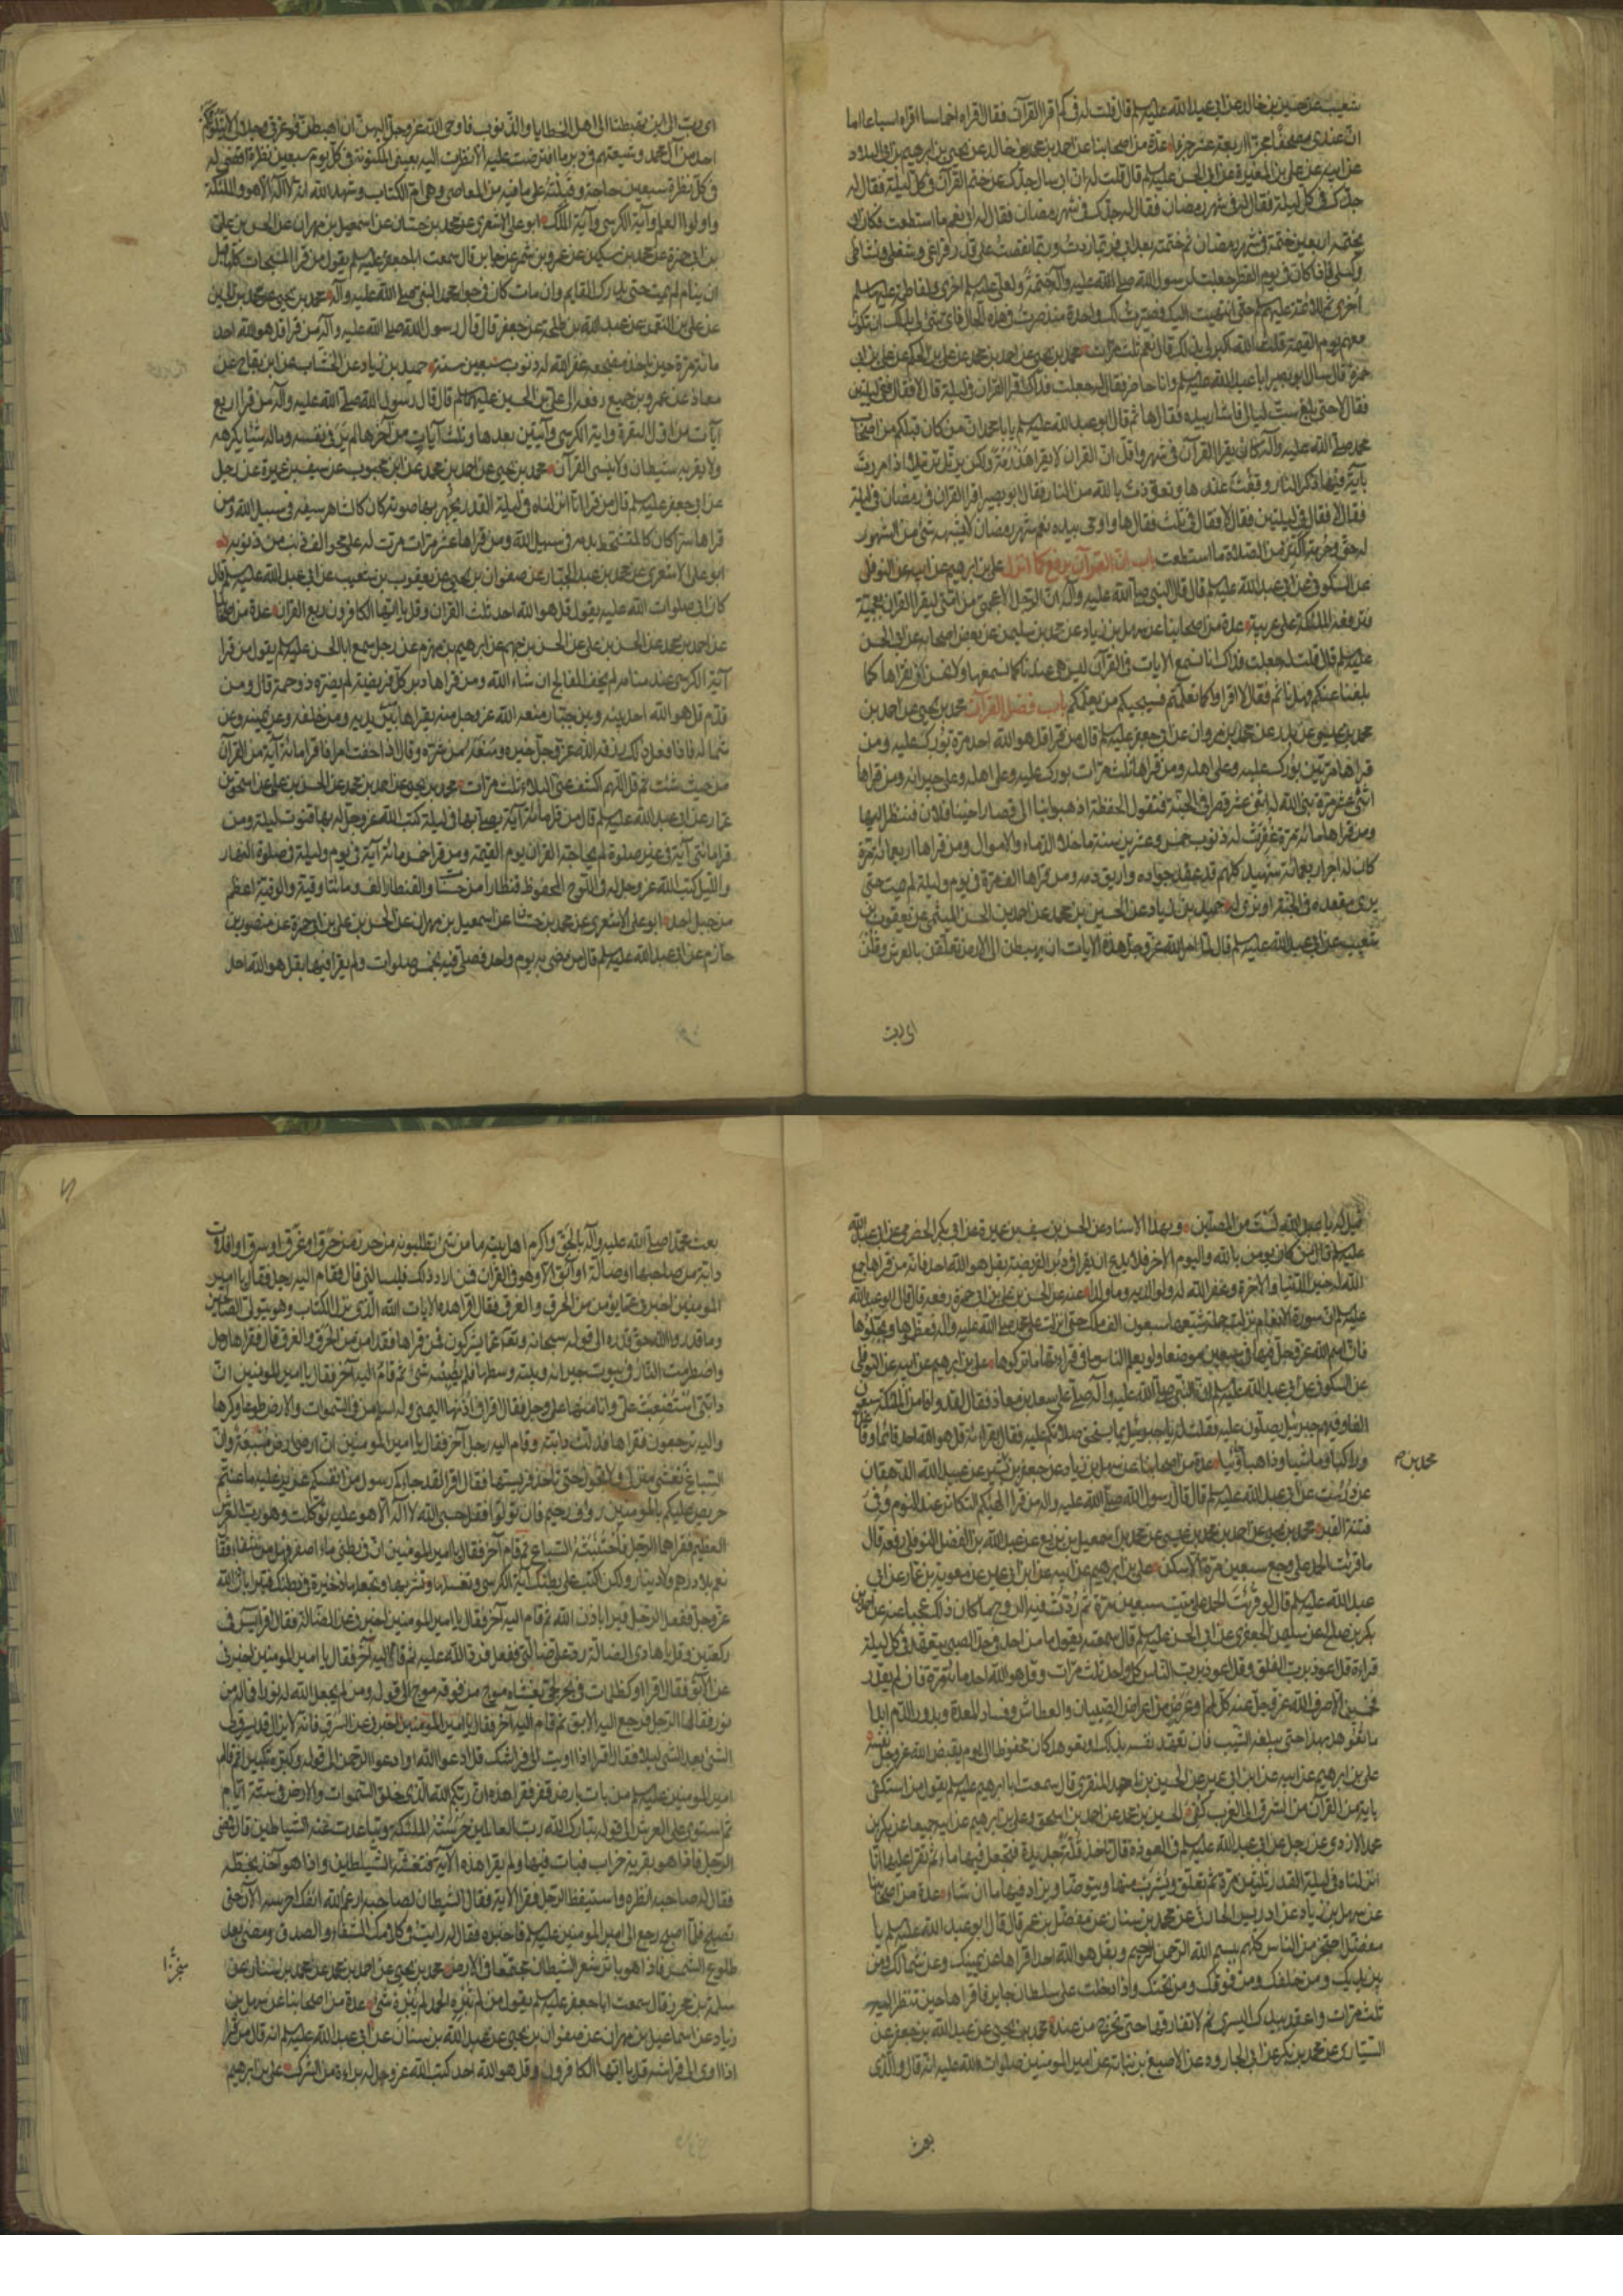 شعيب عن حسين بن خالد عن ابي عبد الله عليه السلم قال قلت له في كم اقرا القرآن فقال اقراه اخماسا اقراه اسباعا اما
ان عندي مصحفا مجزى اربعة عشر جزءا عدة من اصحابنا عن احمد بن محمد بن خالد عن يحيى بن ابرهيم بن ابي البلاد
عن ابيه عن علي بن المغيرة عن ابي الحسن عليه السلم قال قلت له ان ابي سال جدك عن ختم القرآن في كل ليلة فقال له
جدك في كل ليلة فقال له في شهر رمضان فقال له جدك في شهر رمضان فقال له ابي نعم ما استطعت فكان ابي
يختمه اربعين ختمة في شهر رمضان ثم ختمته بعد ابي فربما زدت وربما نقصت على قدر فراغي وشغلي ونشاطي
وكسلي فاذا كان في يوم الفطر جعلت لرسول الله صلى الله عليه وآله ختمة ولعلي عليه السلم اخرى ولفاطمة عليها السلم
اخرى ثم للائمة عليهم السلم حتى انتهيت اليك فصيرت لك واحدة منذ صرت في هذه الحال فاي شئ لي بذلك قال لك ان تكون
معهم يوم القيمة قلت الله اكبر لي بذلك قال نعم ثلث مرات محمد بن يحيى عن احمد بن محمد عن علي بن الحكم عن علي بن ابي
حمزة قال سال ابو بصير ابا عبد الله عليه السلم وانا حاضر فقال له جعلت فداك اقرا القرآن في ليلة قال لا فقال في ليلتين
فقال لا حتى بلغ ست ليال فاشار بيده فقال ها ثم قال ابو عبد الله عليه السلم يا با محمد ان من كان قبلكم من اصحاب
محمد صلى الله عليه وآله كان يقرا القرآن في شهر واقل ان القرآن لا يقرا هذرمة ولكن يرتل ترتيلا اذا مررت
بآية فيها ذكر النار وقفت عندها وتعوذت بالله من النار فقال ابو بصير اقرا القرآن في رمضان في ليلة
فقال لا فقال في ليلتين فقال لا فقال في ثلث فقال ها واومى بيده نعم شهر رمضان لا يشبهه شئ من الشهور
له حق وحرمة اكثر من الصلاة ما استطعت باب ان القرآن يرفع كما انزل علي بن ابرهيم عن ابيه عن النوفلي
عن السكوني عن ابي عبد الله عليه السلم قال قال النبي صلى الله عليه وآله ان الرجل الاعجمي من امتي ليقرا القرآن بعجمية
فترفعه الملئكة على عربية عدة من اصحابنا عن سهل بن زياد عن محمد بن سليمن عن بعض اصحابه عن ابي الحسن
عليه السلم قال قلت له جعلت فداك انا نسمع الآيات في القرآن ليس هي عندنا كما نسمعها ولا نحسن ان نقراها كما
بلغنا عنكم فهل ناثم فقال لا اقراوا كما تعلمتم فسيجيكم من يعلمكم باب فضل القرآن محمد بن يحيى عن احمد بن
محمد بن عيسى عن بدر عن محمد بن مروان عن ابي جعفر عليه السلم قال من قرا قل هو الله احد مرة بورك عليه ومن
قراها مرتين بورك عليه وعلى اهله ومن قراها ثلث مرات بورك عليه وعلى اهله وعلى جيرانه ومن قراها
اثنى عشر مرة بنى الله له اثنى عشر قصرا في الجنة فتقول الحفظة اذهبوا بنا الى قصار اخينا فلان فننظر اليها
ومن قراها مائة مرة غفرت له ذنوب خمس وعشرين سنة ما خلا الدماء والاموال ومن قراها اربعمائة مرة
كان له اجر اربعمائة شهيد كلهم قد عقر جواده واريق دمه ومن قراها الف مرة في يوم وليلة لم يمت حتى
يرى مقعده في الجنة او ترى له حميد بن زياد عن الحسين بن محمد عن احمد بن الحسن الميثمي عن يعقوب بن
شعيب عن ابي عبد الله عليه السلم قال لما امر الله عز وجل هذه الآيات ان يهبطن الى الارض تعلقن بالعرش وقلن
اي رب
اي رب الى اين تهبطنا الى اهل الخطايا والذنوب فاوحى الله عز وجل اليهن ان اهبطن فوعزتي وجلالي لا يتلوكم
احد من آل محمد وشيعتهم في دبر ما افترضت عليه الا نظرت اليه بعيني المكنونة في كل يوم سبعين نظرة اقضي له
في كل نظرة سبعين حاجة وقبلته على ما فيه من المعاصي وهي ام الكتاب وشهد الله انه لا اله الا هو والملئكة
واولوا العلم وآية الكرسي وآية الملك ابو علي الاشعري عن محمد بن حسان عن اسمعيل بن مهران عن الحسن بن علي
بن ابي حمزة عن محمد بن سكين عن عمرو بن شمر عن جابر قال سمعت ابا جعفر عليه السلم يقول من قرا المسبحات كلها قبل
ان ينام لم يمت حتى يدرك القايم وان مات كان في جوار محمد النبي صلى الله عليه وآله محمد بن يحيى عن محمد بن الحسين
عن علي بن النعمن عن عبد الله بن طلحة عن جعفر قال قال رسول الله صلى الله عليه وآله من قرا قل هو الله احد
مائة مرة حين ياخذ مضجعه غفر الله له ذنوب سبعين سنة حميد بن زياد عن الخشاب عن ابن بقاح عن
معاذ عن عمرو بن جميع رفعه الى علي بن الحسين عليهما السلم قال قال رسول الله صلى الله عليه وآله من قرا اربع
آيات من اول البقرة وآية الكرسي وآيتين بعدها وثلث آيات من آخرها لم ير في نفسه وماله شيئا يكرهه
ولا يقربه شيطان ولا ينسى القرآن محمد بن يحيى عن احمد بن محمد عن ابن محبوب عن سيف بن عميرة عن رجل
عن ابي جعفر عليه السلم قال من قرا انا انزلناه في ليلة القدر يجهر بها صوته كان كالشاهر سيفه في سبيل الله ومن
قراها سرا كان كالمتشحط بدمه في سبيل الله ومن قراها عشر مرات مرت له على محو الف ذنب من ذنوبه
ابو علي الاشعري عن محمد بن عبد الجبار عن صفوان بن يحيى عن يعقوب بن شعيب عن ابي عبد الله عليه السلم قال
كان ابي صلوات الله عليه يقول قل هو الله احد ثلث القرآن وقل يا ايها الكافرون ربع القرآن عدة من اصحابنا
عن احمد بن محمد عن الحسن بن علي عن الحسن بن جهم عن ابرهيم بن مهزم عن رجل سمع ابا الحسن عليه السلم يقول من قرا
آية الكرسي عند منامه لم يخف الفالج ان شاء الله ومن قراها دبر كل فريضة لم يضره ذو حمة قال ومن
قدم قل هو الله احد بينه وبين جبار منعه الله عز وجل منه يقراها بين يديه ومن خلفه وعن يمينه وعن
شماله فاذا فعل ذلك رزقه الله عز وجل خيره ومنعه من شره وقال اذا خفت امرا فاقرا مائة آية من القرآن
من حيث شئت ثم قل اللهم اكشف عني البلاء ثلث مرات محمد بن يحيى عن احمد بن محمد عن الحسن بن علي عن اسحق بن
عمار عن ابي عبد الله عليه السلم قال من قرا مائة آية يصلي بها في ليلة كتب الله عز وجل له بها قنوت ليلة ومن
قرا مائتي آية في غير صلوة لم يحاجه القرآن يوم القيمة ومن قرا خمس مائة آية في يوم وليلة في صلوة النهار
والليل كتب الله عز وجل له في اللوح المحفوظ قنطارا من حسنات والقنطار الف ومائتا وقية والوقية اعظم
من جبل احد ابو علي الاشعري عن محمد بن حسان عن اسمعيل بن مهران عن الحسن بن علي بن ابي حمزة عن منصور بن
حازم عن ابي عبد الله عليه السلم قال من مضى به يوم واحد فصلى فيه بخمس صلوات ولم يقرا فيها بقل هو الله احد
قيل له يا عبد الله لست من المصلين وبهذا الاسناد عن الحسن بن سيف بن عميرة عن ابي بكر الحضرمي عن ابي عبد الله
عليه السلم قال من كان يومن بالله واليوم الآخر فلا يدع ان يقرا في دبر الفريضة بقل هو الله احد فانه من قراها جمع
الله له خير الدنيا والآخرة وغفر الله له ولوالديه وما ولدا عنه عن الحسن بن علي بن ابي حمزة رفعه قال قال ابو عبد الله
عليه السلم ان سورة الانعام نزلت جملة شيعها سبعون الف ملك حتى انزلت على محمد صلى الله عليه وآله فعظموها وبجلوها
فان اسم الله عز وجل فيها في سبعين موضعا ولو يعلم الناس ما في قراءتها ما تركوها علي بن ابرهيم عن ابيه عن النوفلي
عن السكوني عن ابي عبد الله عليه السلم ان النبي صلى الله عليه وآله صلى على سعد بن معاذ فقال لقد وافا من الملئكة سبعون
الفا وفيهم جبرئيل يصلون عليه فقلت له يا جبرئيل بما يستحق صلاتكم عليه فقال بقراءته قل هو الله احد قائما وقاعدا
وراكبا وماشيا وذاهبا وجائيا عدة من اصحابنا عن سهل بن زياد عن جعفر بن بشير عن عبيد الله الدهقان
محمد بن
عن درست عن ابي عبد الله عليه السلم قال قال رسول الله صلى الله عليه وآله من قرا الهيكم التكاثر عند النوم وقي
فتنة القبر محمد بن يحيى عن احمد بن محمد بن عيسى عن محمد بن اسمعيل بن بزيع عن عبد الله بن الفضل النوفلي رفعه قال
ما قرئت الحمد على وجع سبعين مرة الا سكن علي بن ابرهيم عن ابيه عن ابن ابي عمير عن معوية بن عمار عن ابي
عبد الله عليه السلم قال لو قرئت الحمد على ميت سبعين مرة ثم ردت فيه الروح ما كان ذلك عجبا عنه عن احمد بن
بكر بن صالح عن سليمن الجعفري عن ابي الحسن عليه السلم قال سمعته يقول ما من احد في حد الصبى يتعهد في كل ليلة
قراءة قل اعوذ برب الفلق وقل اعوذ برب الناس كل واحد ثلث مرات وقل هو الله احد مائة مرة فان لم يقدر
فخمسين الا صرف الله عز وجل عنه كل لمم او عرض من اعراض الصبيان والعطاش وفساد المعدة وبدور الدم ابدا
ما تعوهد بهذا حتى يبلغه الشيب فان تعهد نفسه بذلك او تعوهد كان محفوظا الى يوم يقبض الله عز وجل نفسه
علي بن ابرهيم عن ابيه عن ابن ابي عمير عن الحسين بن احمد المنقري قال سمعت ابا ابرهيم عليه السلم يقول من استكفى
بآية من القرآن من الشرق الى الغرب كفي الحسين بن محمد عن احمد بن اسحق وعلي بن ابرهيم عن ابيه جميعا عن بكر بن
محمد الازدي عن رجل عن ابي عبد الله عليه السلم في العوذة قال تاخذ قلة جديدة فتجعل فيها ماء ثم تقرا عليها انا
انزلناه في ليلة القدر ثلثين مرة ثم تعلق ويشرب منها ويتوضا ويزاد فيها ماء ان شاء عدة من اصحابنا
عن سهل بن زياد عن ادريس الحارثي عن محمد بن سنان عن مفضل بن عمر قال قال ابو عبد الله عليه السلم يا
مفضل احتجز من الناس كلهم ببسم الله الرحمن الرحيم وبقل هو الله احد اقراها عن يمينك وعن شمالك ومن
بين يديك ومن خلفك ومن فوقك ومن تحتك واذا دخلت على سلطان جاير فاقراها حين تنظر اليه
ثلث مرات واعقد بيدك اليسرى ثم لا تفارقها حتى تخرج من عنده محمد بن يحيى عن عبد الله بن جعفر عن
السياري عن محمد بن بكر عن ابي الجارود عن الاصبغ بن نباتة عن امير المومنين صلوات الله عليه انه قال والذي
بعث
بعث محمدا صلى الله عليه وآله بالحق واكرم اهل بيته ما من شئ تطلبونه من حرز من حرق او غرق او سرق او افلات
دابة من صاحبها او ضالة او آبق الا وهو في القرآن فمن اراد ذلك فليسالني قال فقام اليه رجل فقال يا امير
المومنين اخبرني عما يومن من الحرق والغرق فقال اقرا هذه الآيات الله الذي نزل الكتاب وهو يتولى الصالحين
وما قدروا الله حق قدره الى قوله سبحانه وتعالى عما يشركون فمن قراها فقد امن من الحرق والغرق قال فقراها رجل
واضطرمت النار في بيوت جيرانه وبيته وسطها فلم يصبه شئ ثم قام اليه آخر فقال يا امير المومنين ان
دابتي استصعبت علي وانا منها على وجل فقال اقرا في اذنها اليمنى وله اسلم من في السموات والارض طوعا وكرها
واليه ترجعون فقراها فذلت دابته وقام اليه رجل آخر فقال يا امير المومنين ان ارضي ارض مسبعة وان
السباع تغشى منزلي ولا تجوز حتى تاخذ فريستها فقال اقرا لقد جاءكم رسول من انفسكم عزيز عليه ما عنتم
حريص عليكم بالمومنين رؤف رحيم فان تولوا فقل حسبي الله لا اله الا هو عليه توكلت وهو رب العرش
العظيم فقراهما الرجل فاجتنبته السباع ثم قام آخر فقال يا امير المومنين ان في بطني ماء اصفر فهل من شفاء فقال
نعم بلا درهم ولا دينار ولكن اكتب على بطنك آية الكرسي وتغسلها وتشربها وتجعلها ذخيرة في بطنك فتبرا باذن الله
عز وجل ففعل الرجل فبرا باذن الله ثم قام اليه آخر فقال يا امير المومنين اخبرني عن الضالة فقال اقرا يس في
ركعتين وقل يا هادي الضالة رد علي ضالتي ففعل فرد الله عليه ثم قام اليه آخر فقال يا امير المومنين اخبرني
عن الآبق فقال اقرا او كظلمات في بحر لجي يغشاه موج من فوقه موج الى قوله ومن لم يجعل الله له نورا فما له من
نور فقالها الرجل فرجع اليه الآبق ثم قام اليه آخر فقال يا امير المومنين اخبرني عن السرق فانه لا يزال قد يسرق لي
الشئ بعد الشئ ليلا فقال اقرا اذا اويت الى فراشك قل ادعوا الله او ادعوا الرحمن الى قوله وكبره تكبيرا ثم قال
امير المومنين عليه السلم من بات بارض قفر فقرا هذه الآية ان ربكم الله الذي خلق السموات والارض في ستة ايام
ثم استوى على العرش الى قوله تبارك الله رب العالمين حرسته الملئكة وتباعدت عنه الشياطين قال فمضى
الرجل فاذا هو بقرية خراب فبات فيها ولم يقرا هذه الآية فتغشته الشياطين واذا هو آخذ بخطمه
فقال له صاحبه انظره واستيقظ الرجل فقرا الآية فقال الشيطان لصاحبه ارغم الله انفك احرسه الآن حتى
يصبح فلما اصبح رجع الى امير المومنين عليه السلم فاخبره فقال له رايت في كلامك الشفاء والصدق ومضى بعد
طلوع الشمس فاذا هو باثر شعر الشيطان مجتمعا في الارض محمد بن يحيى عن احمد بن محمد عن محمد بن سنان عن
سلمة بن محرز قال سمعت ابا جعفر عليه السلم يقول من لم يبرئه الحمد لم يبرئه شئ عدة من اصحابنا عن سهل بن
زياد عن اسماعيل بن مهران عن صفوان بن يحيى عن عبد الله بن سنان عن ابي عبد الله عليه السلم انه قال من قرا
اذا اوى الى فراشه قل يا ايها الكافرون وقل هو الله احد كتب الله عز وجل له براءة من الشرك علي بن ابرهيم